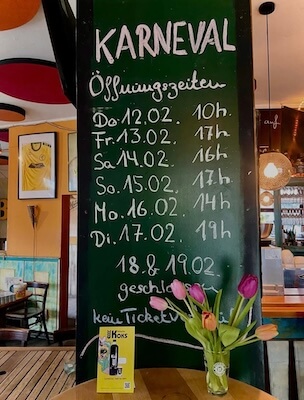 KARNEVAL
Öffnungszeiten
Do. 12.02. 10h.
Fr. 13.02. 17h
Sa 14.02. 16h
So. 15.02. 17h.
Mo. 16.02. 14h
Di. 17.02. 19h
18. & 19.02.
geschlossen
kein Ticket
KOKS